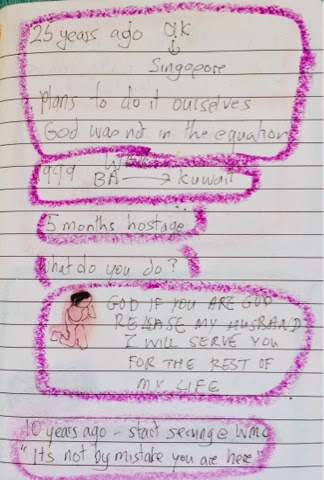 25 years ago UK
↓
Singapore
plans to do it ourselves
God was not in the equation
BA → Kuwait
5 months hostage
What do you do?
GOD IF YOU ARE GOD
RELEASE MY HUSBAND
I WILL SERVE YOU
FOR THE REST OF
MY LIFE
10 years ago - start serving @ WMC
"It's not by mistake you are here"